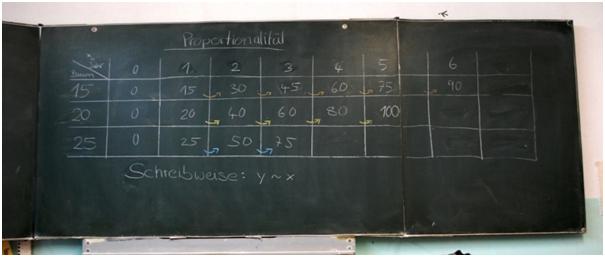 Proportionalität
0 1 2 3 4 5 6
15 0 15 30 45 60 75 90
20 0 20 40 60 80 100
25 0 25 50 75
Schreibweise: y ~ x